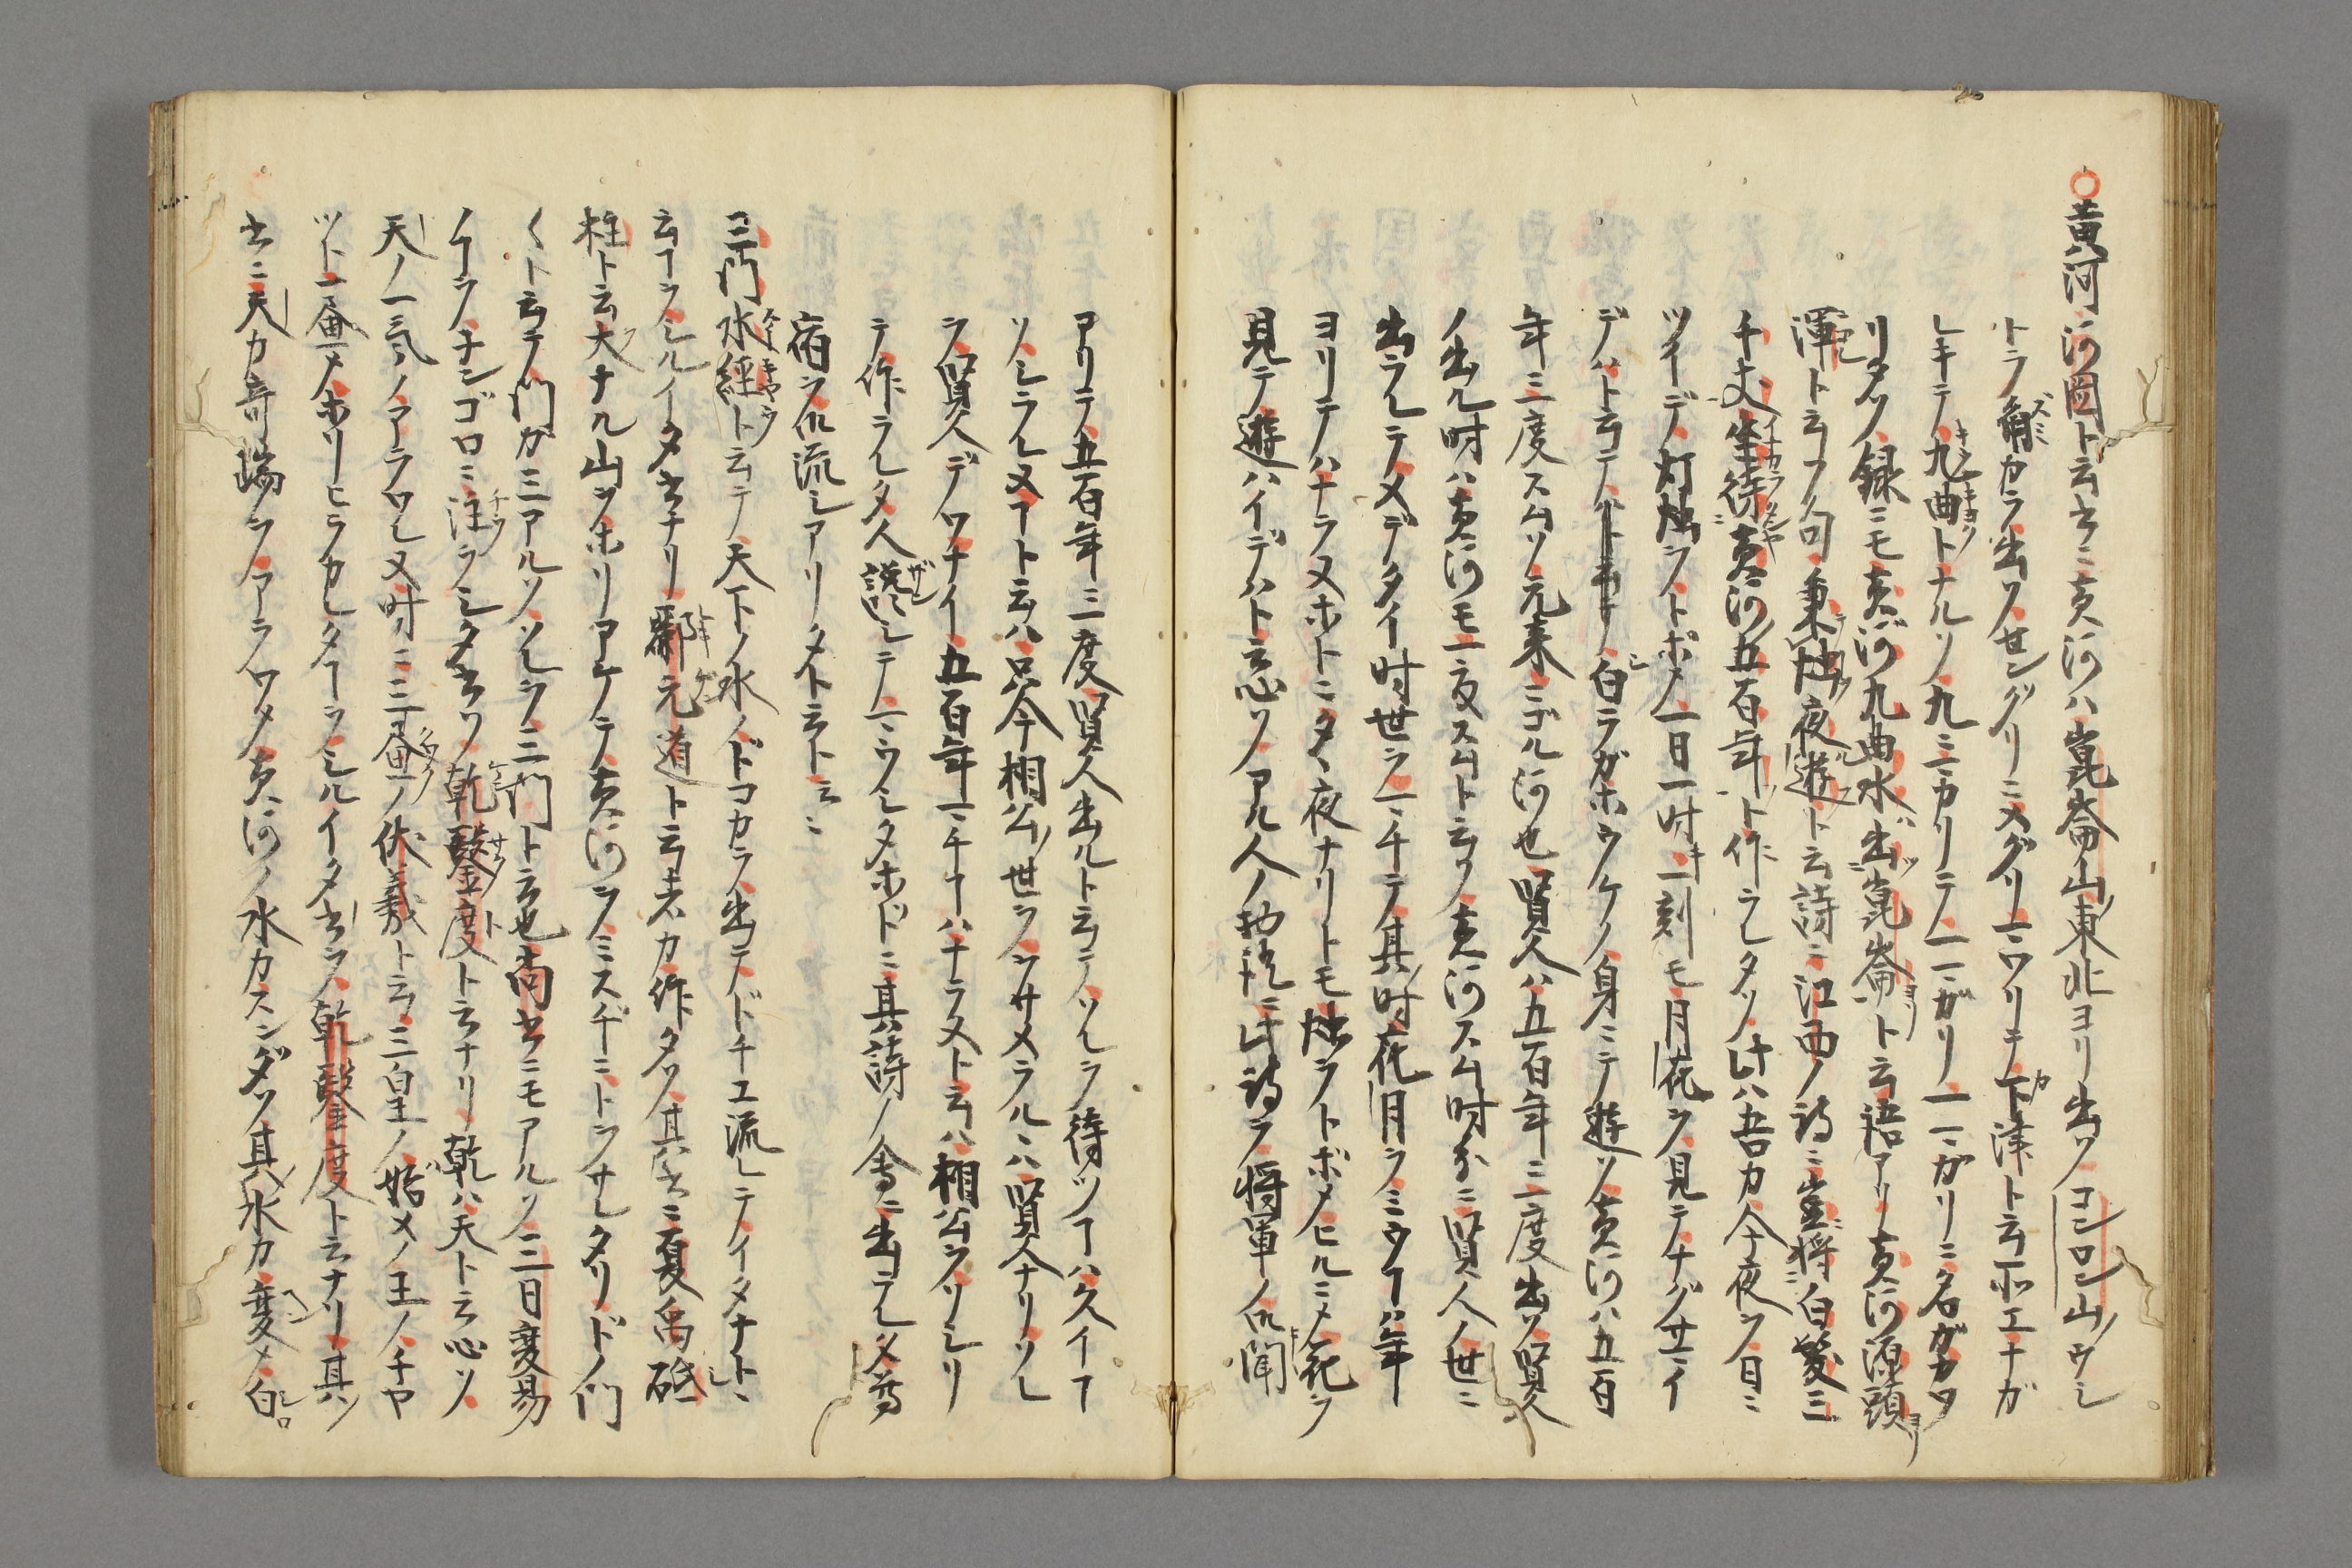 ○黄河 河圖ト云書ニ黄河ハ崑崙山ノ東北ヨリ出ツソコンロン山ノウシ
トラノ角カラ出ソセングリニメグリマワリテ下津ト云所エナガ
レキテ九曲トナルソ九ニカリテ一マガリ一マガリニ名ガカワ
リタソ録ニモ黄河九曲水出崑崙ト云語アリ黄河源頭
渾ト云フ句秉燭夜遊ト云詩ニ江西ノ詩ニ豈將白髪三
千丈坐待黄河五百年ト作ラレタソ此ハ吾カ今夜ヲ日ニ
ツイデ灯燭ヲトボメ一日一时一刻モ月花ヲ見テナグサマイ
デハト云テノ白ラガホウケノ身ニテ遊ソ黄河ハ五百
年ニ一度スムソ元来ニゴル河也賢人ハ五百年ニ一度出ツ賢人
ノ出ル时ハ黄河モ一度スムト云ソ黄河スム时分ニ賢人ノ世ニ
出ラレテメデタイ时世ヲマチテ其时花月ヲミウヿハ年
ヨリテハナラヌホトニタヽ夜ナリトモ燭ヲトボメヒルニメ花ヲ
見テ遊ハイデハト云心ソアル人ノ物語ニ此詩ヲ将軍ノ仰聞
アリテ五百年ニ一度賢人出ルト云テソレヲ待ツヿハ久イヿ
ソシラレヌヿト云ハ只今相公ノ世ヲヲサメラルヽハ賢人ナリソレ
ヲ賢人デノウナイ五百年マチヿハナラヌト云ハ相公ヲソシリ
テ作ラレタ人讒シテマウシタホドニ其詩ノ会ニ出ラレタ尊
宿ヲ仰流シアリタト云ト云ニ
三門 水經ト云テ天下ノ水ノドコカラ出テドチエ流レテイタナトヽ
云ヿヲシルイタ書ナリ酈元道ト云者カ作タソ其書ニ夏禹砥
柱ト云大ナル山ヲホリアケテ黄河ヲミスヂニトヲサレタリドノ门
くト云テ门ガ三アルソソレヲ三门ト云也尚書ニモアルソ三日變易
ノヿヲチンゴロニ注ヲシタ書ソ乾鑿度ト云ナリ乾ハ天ト云心ソ
天ノ一気ノアラワレヌ时ニ三畫ノ伏羲ト云三皇ノ始メノ王ノチヤ
ツト一畫メホリヒラカレタヿヲシルイタ書ヲ乾鑿度ト云ナリ其ノ
書ニ天カ奇瑞ヲアラワメ黄河ノ水カスンダソ其水カ変メ白